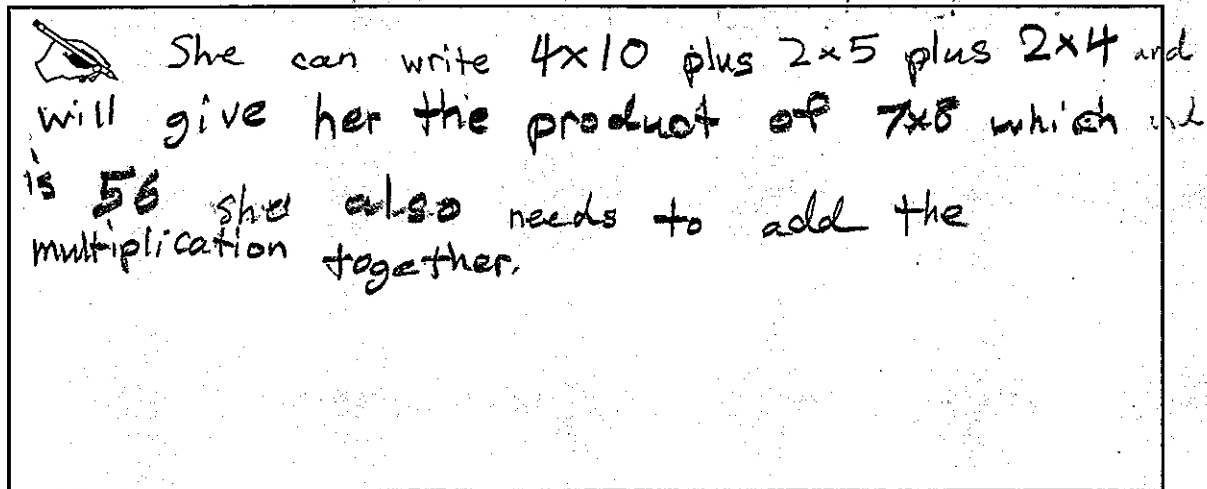 She can write 4x10 plus 2x5 plus 2x4 and
will give her the product of 7x8 which
is 56 she also needs to add the
multiplication together.